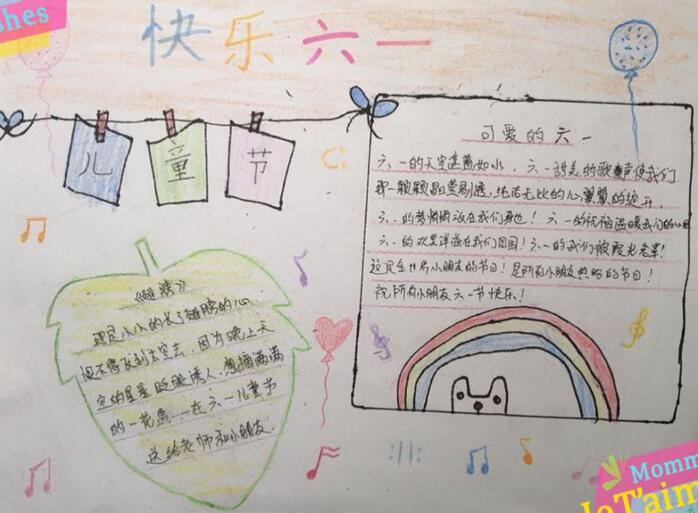 shes
快乐六一
儿童节
可爱的六一
六一的天空湛蓝如水，六一甜美的歌声使我们
那一颗颗晶莹剔透，纯洁无比的心翼翼的绽开，
六一的梦悄悄放在我们身边！六一的祝福温暖我们的心田
六一的欢笑洋溢在我们周围！六一的我们被霞光笼罩！
这是全世界小朋友的节日！是所有小朋友热盼的节日！
祝所有小朋友六一节快乐！
《翅膀》
那是小小的长了翅膀的心
恨不得飞到太空去，因为晚上天
空的星星眨眼诱人，想摘满满
的一花 在六一儿童节
送给老师和小朋友.
Momm
Je T'aim